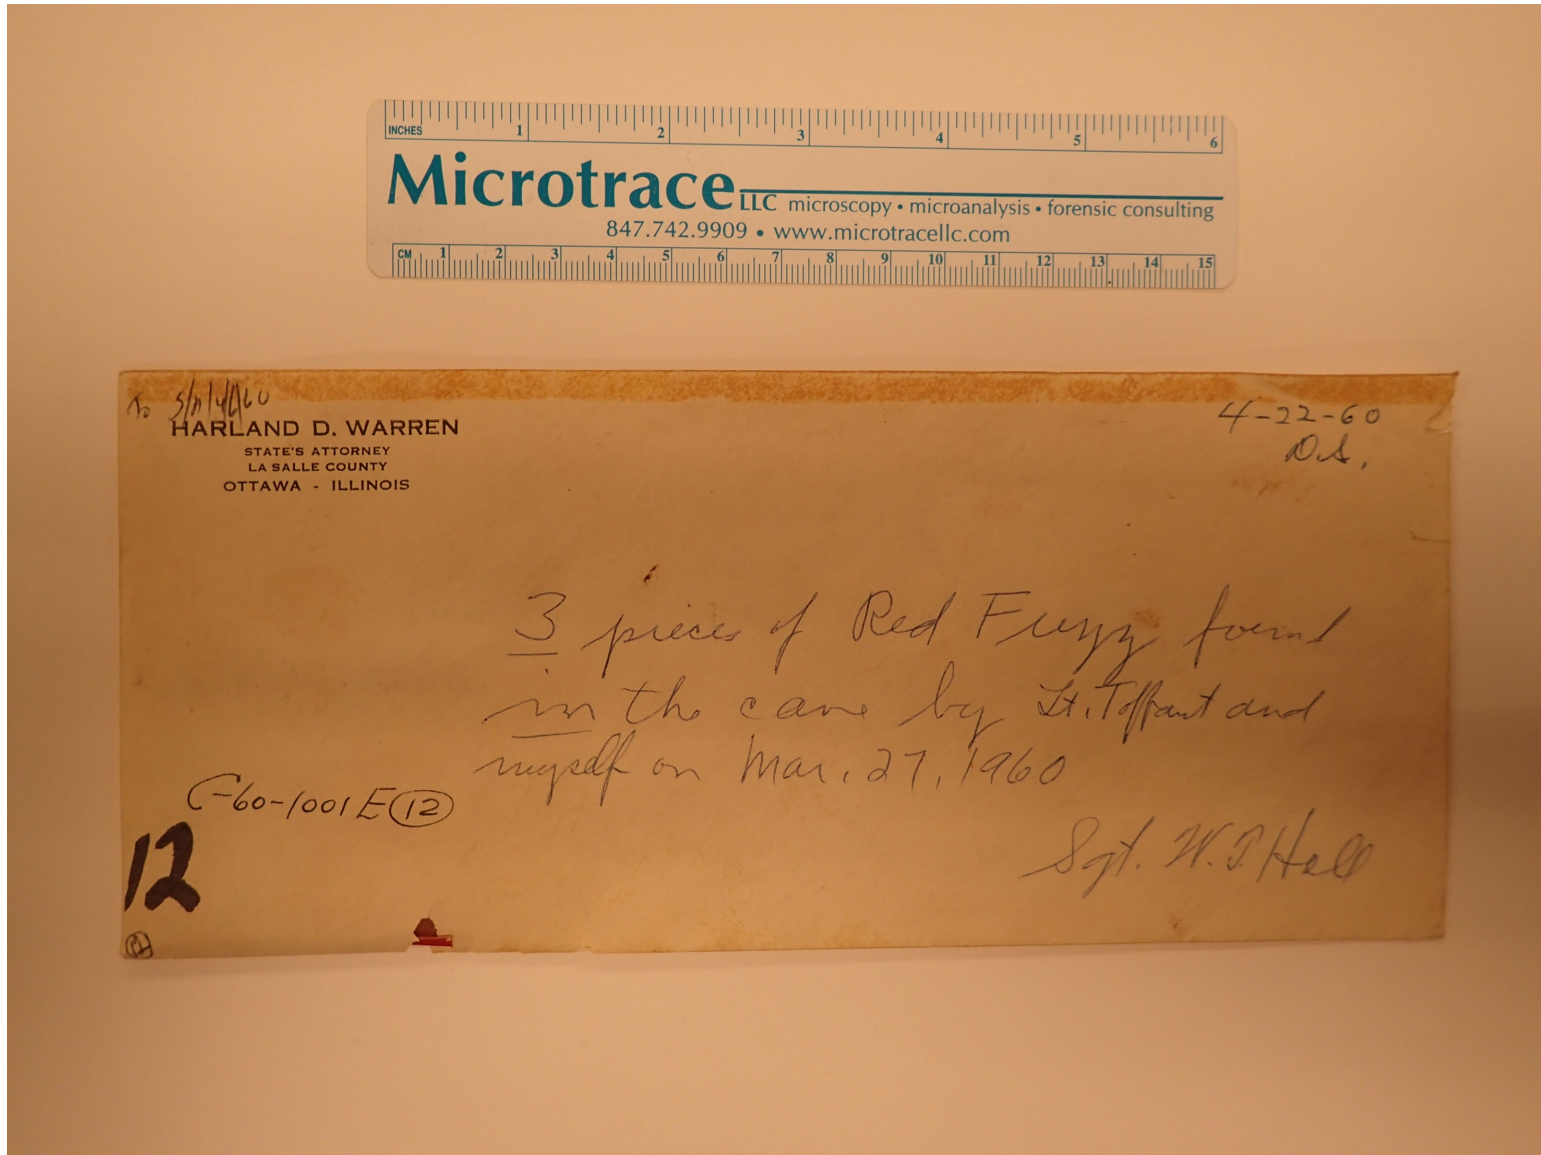 INCHES 1 2 3 4 5 6
Microtrace LLC microscopy • microanalysis • forensic consulting
847.742.9909 • www.microtracellc.com
CM 1 2 3 4 5 6 7 8 9 10 11 12 13 14 15
To
HARLAND D. WARREN
STATE'S ATTORNEY
LA SALLE COUNTY
OTTAWA - ILLINOIS
4-22-60
D.S.
3 pieces of Red Fuzz found
in the cave by Lt. and
myself on Mar. 27, 1960
Sgt. W. Hall
C-60-1001 E 12
12